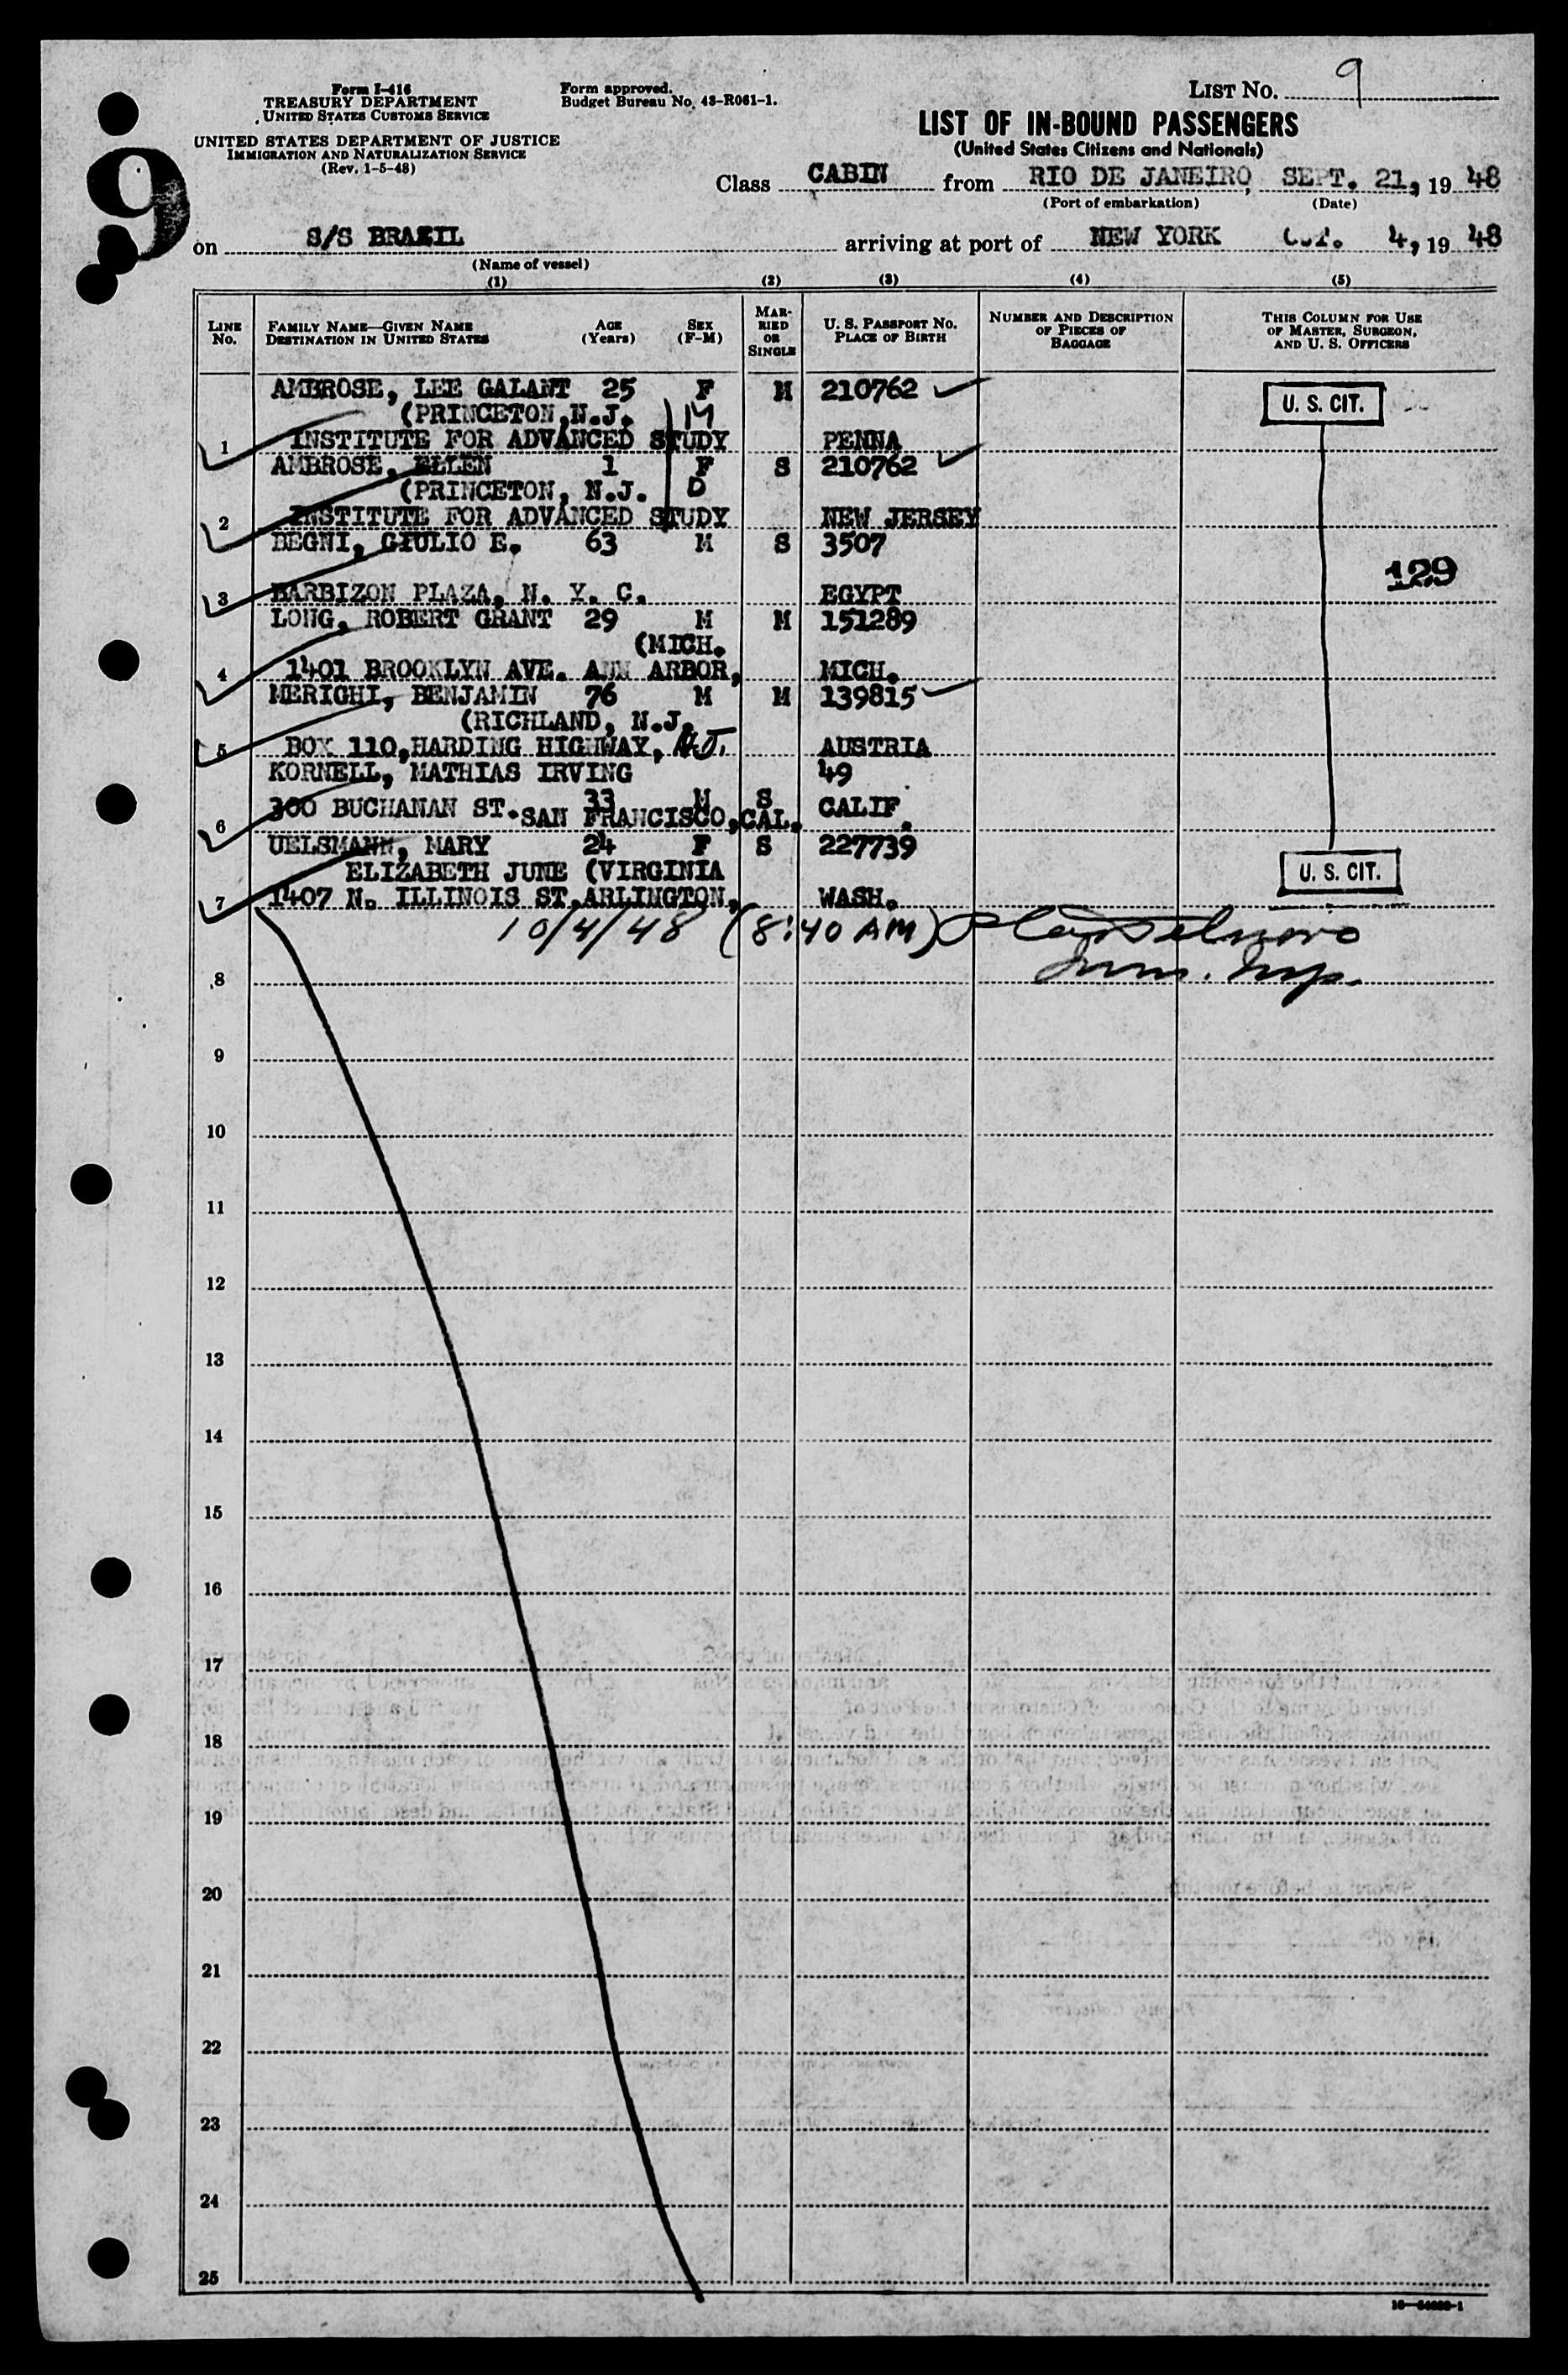 9
Form I-416
TREASURY DEPARTMENT
UNITED STATES CUSTOMS SERVICE
UNITED STATES DEPARTMENT OF JUSTICE
IMMIGRATION AND NATURALIZATION SERVICE
(Rev. 1-5-48)
Form approved.
Budget Bureau No. 43-R061-1.
LIST No. 9
LIST OF IN-BOUND PASSENGERS
(United States Citizens and Nationals)
Class CABIN from RIO DE JANEIRO, SEPT. 21, 19 48
(Port of embarkation) (Date)
on S/S BRAZIL arriving at port of NEW YORK OCT. 4, 19 48
(Name of vessel)
(1) (2) (3) (4) (5)
LINE No. FAMILY NAME—GIVEN NAME DESTINATION IN UNITED STATES AGE (Years) SEX (F-M) MARRIED OR SINGLE U. S. PASSPORT NO. PLACE OF BIRTH NUMBER AND DESCRIPTION OF PIECES OF BAGGAGE THIS COLUMN FOR USE OF MASTER, SURGEON, AND U. S. OFFICERS
AMBROSE, LEE GALANT 25 F M 210762 U. S. CIT.
(PRINCETON, N.J. M
1 INSTITUTE FOR ADVANCED STUDY PENNA
AMBROSE, ELLEN 1 F S 210762
(PRINCETON, N.J. D
2 INSTITUTE FOR ADVANCED STUDY NEW JERSEY
BEGNI, GIULIO E. 63 M S 3507
129
3 BARBIZON PLAZA, N. Y. C. EGYPT
LONG, ROBERT GRANT 29 M M 151289
(MICH.
4 1401 BROOKLYN AVE. ANN ARBOR, MICH.
MERIGHI, BENJAMIN 76 M M 139815
(RICHLAND, N.J.
5 BOX 110, HARDING HIGHWAY, N.J. AUSTRIA
KORNELL, MATHIAS IRVING 49
33 M S
6 300 BUCHANAN ST. SAN FRANCISCO, CAL. CALIF.
UELSMANN, MARY 24 F S 227739
ELIZABETH JUNE (VIRGINIA U. S. CIT.
7 1407 N. ILLINOIS ST. ARLINGTON, WASH.
10/4/48 (8:40 AM)
Imm. Insp.
8
9
10
11
12
13
14
15
16
17
18
19
20
21
22
23
24
25